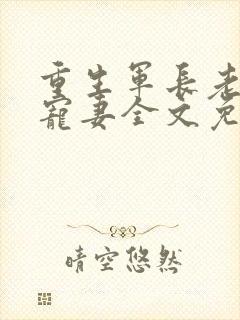 重生军长老
宠妻全文免
晴空悠然